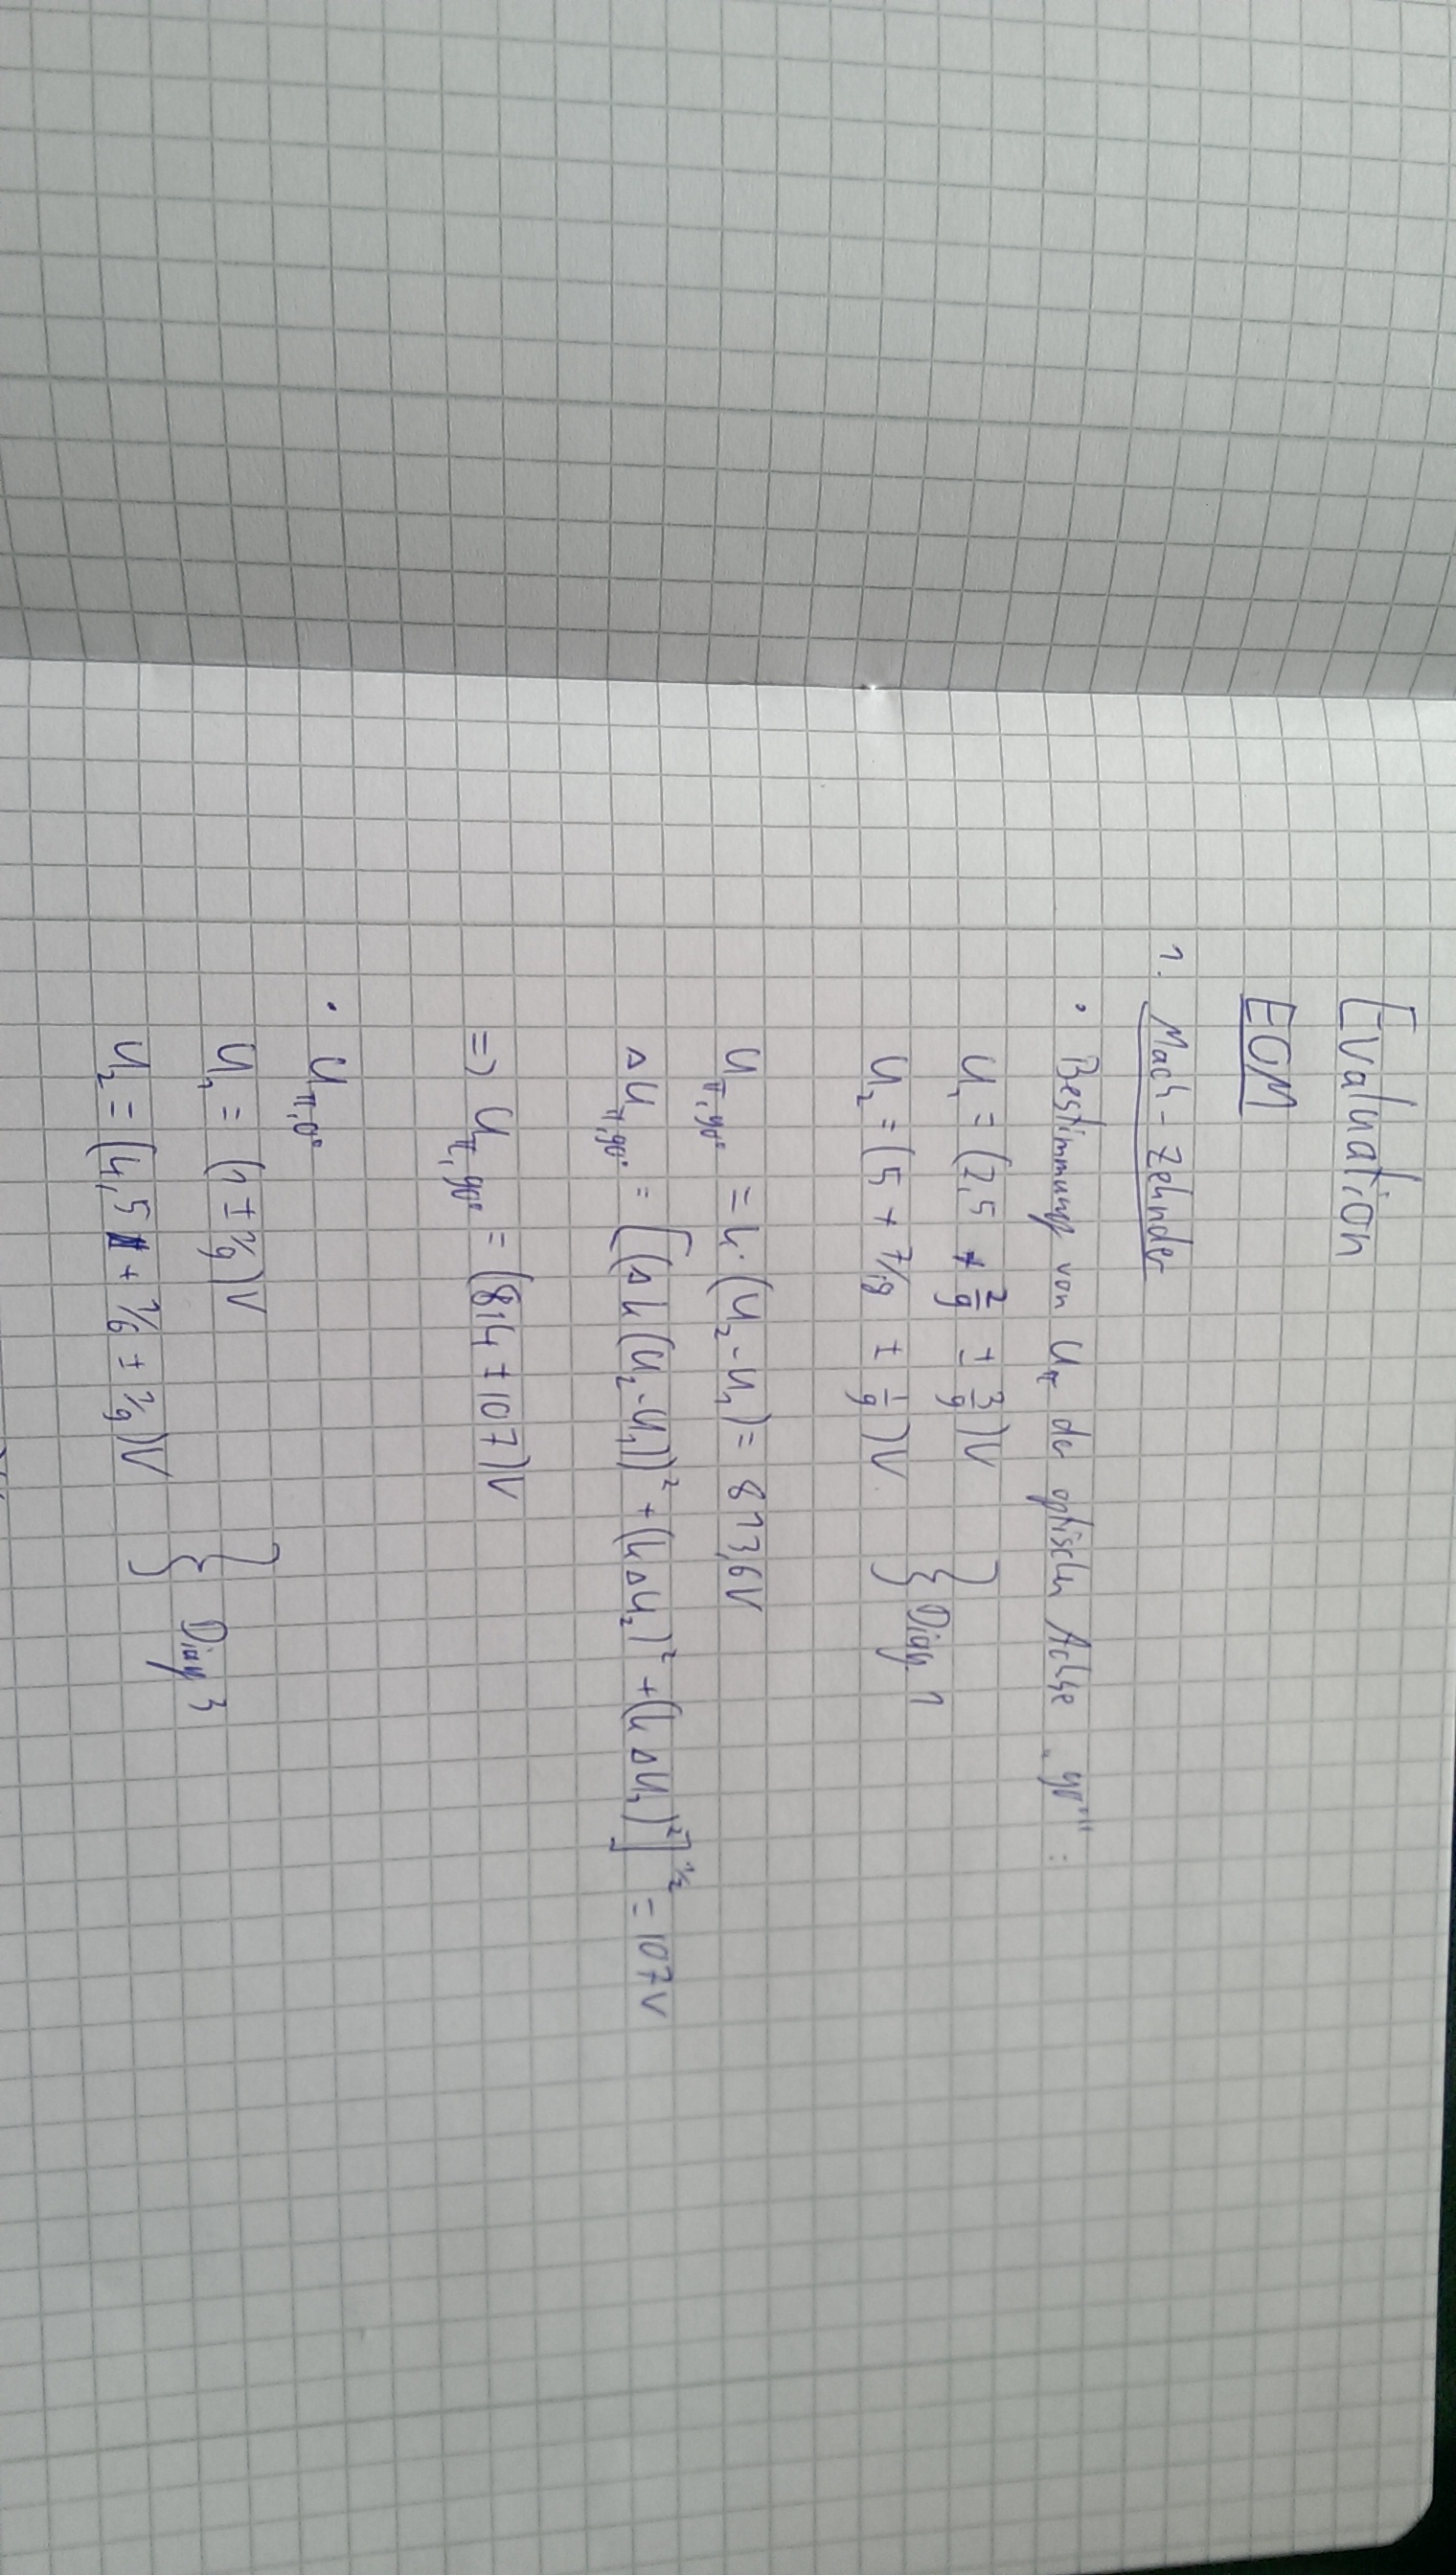 Evaluation
EOM
1. Mach-Zehnder
• Bestimmung von Uπ der optischen Achse „90°":
U₁ = (2,5 + 2/9 ± 3/9)V
U₂ = (5 + 7/18 ± 1/9)V } Diag. 1
Uπ,90° = k·(U₂-U₁) = 813,6V
ΔUπ,90° = [(Δk(U₂-U₁))² + (kΔU₂)² + (kΔU₁)²]^1/2 = 107V
=> Uπ,90° = (814 ± 107)V
• Uπ,0°
U₁ = (1 ± 1/9)V
U₂ = (4,5 + 1/6 ± 1/9)V } Diag. 3